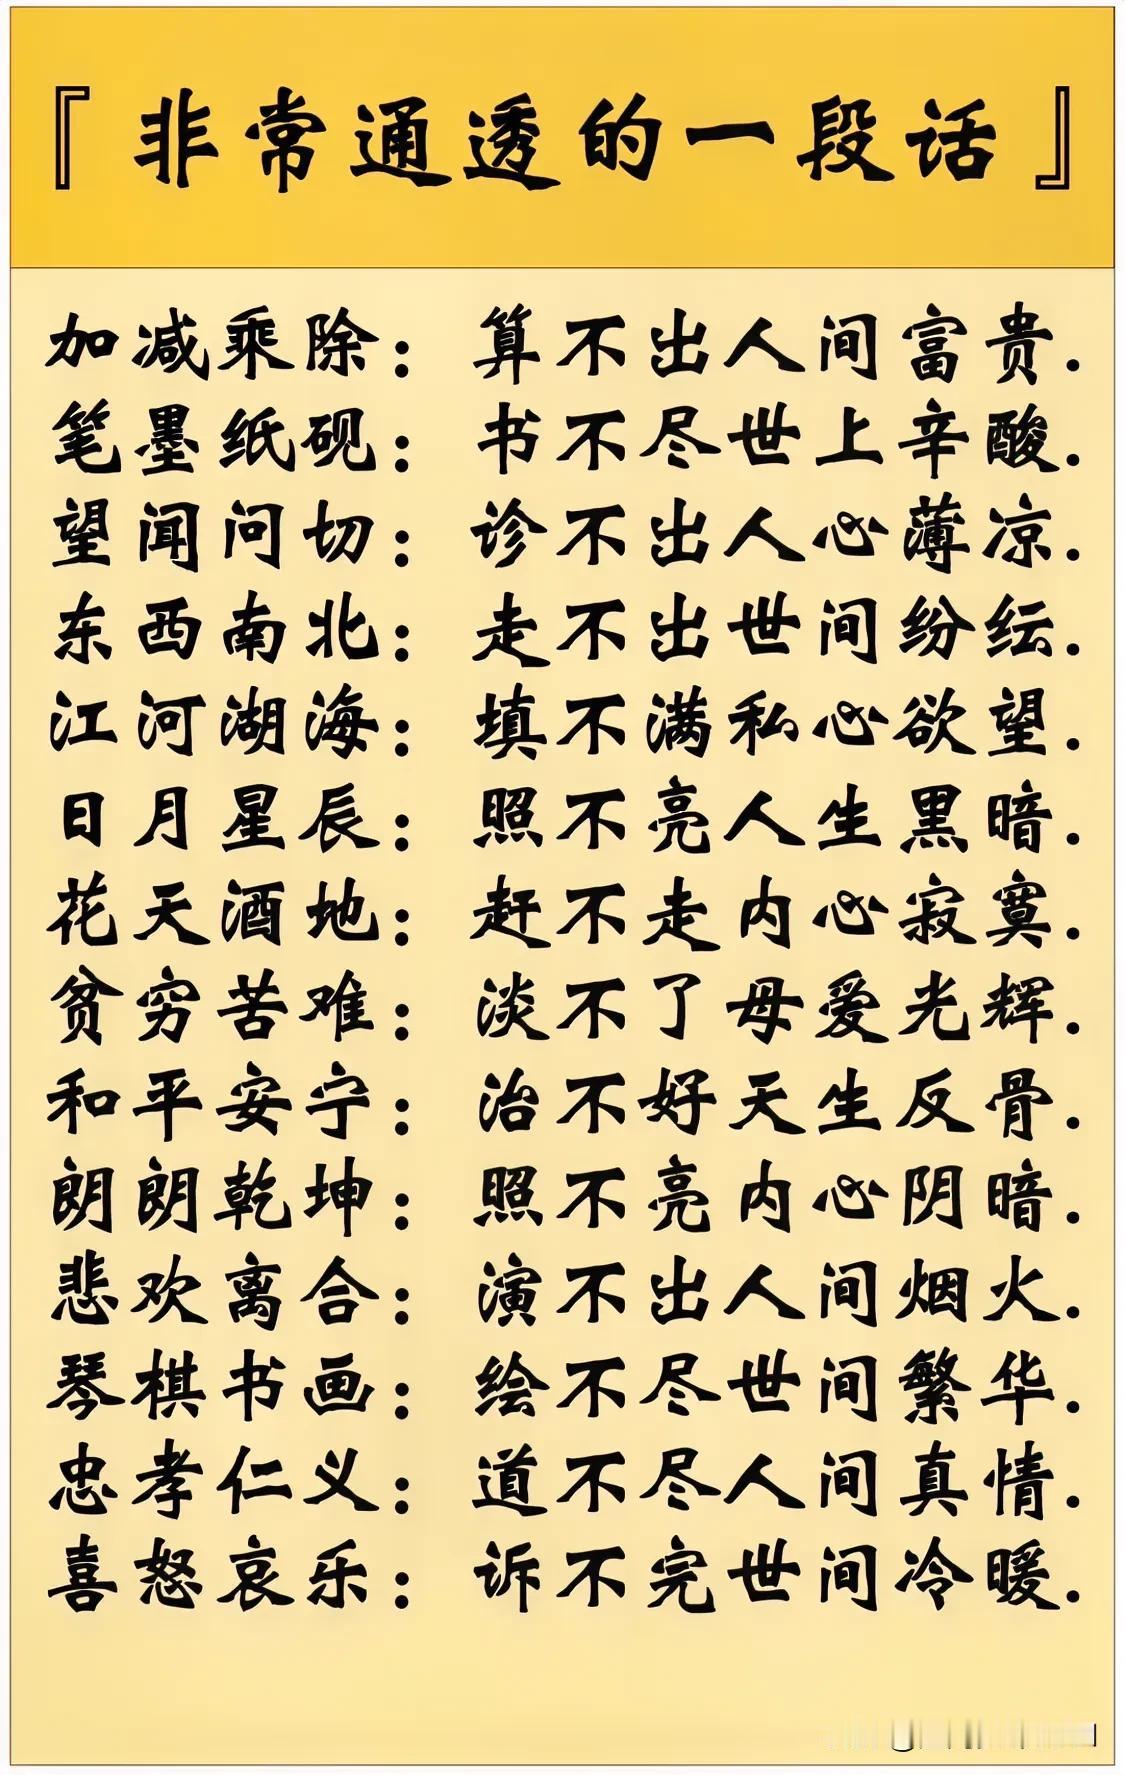 『非常通透的一段话』
加减乘除：算不出人间富贵.
笔墨纸砚：书不尽世上辛酸.
望闻问切：诊不出人心薄凉.
东西南北：走不出世间纷纭.
江河湖海：填不满私心欲望.
日月星辰：照不亮人生黑暗.
花天酒地：赶不走内心寂寞.
贫穷苦难：淡不了母爱光辉.
和平安宁：治不好天生反骨.
朗朗乾坤：照不亮内心阴暗.
悲欢离合：演不出人间烟火.
琴棋书画：绘不尽世间繁华.
忠孝仁义：道不尽人间真情.
喜怒哀乐：诉不完世间冷暖.